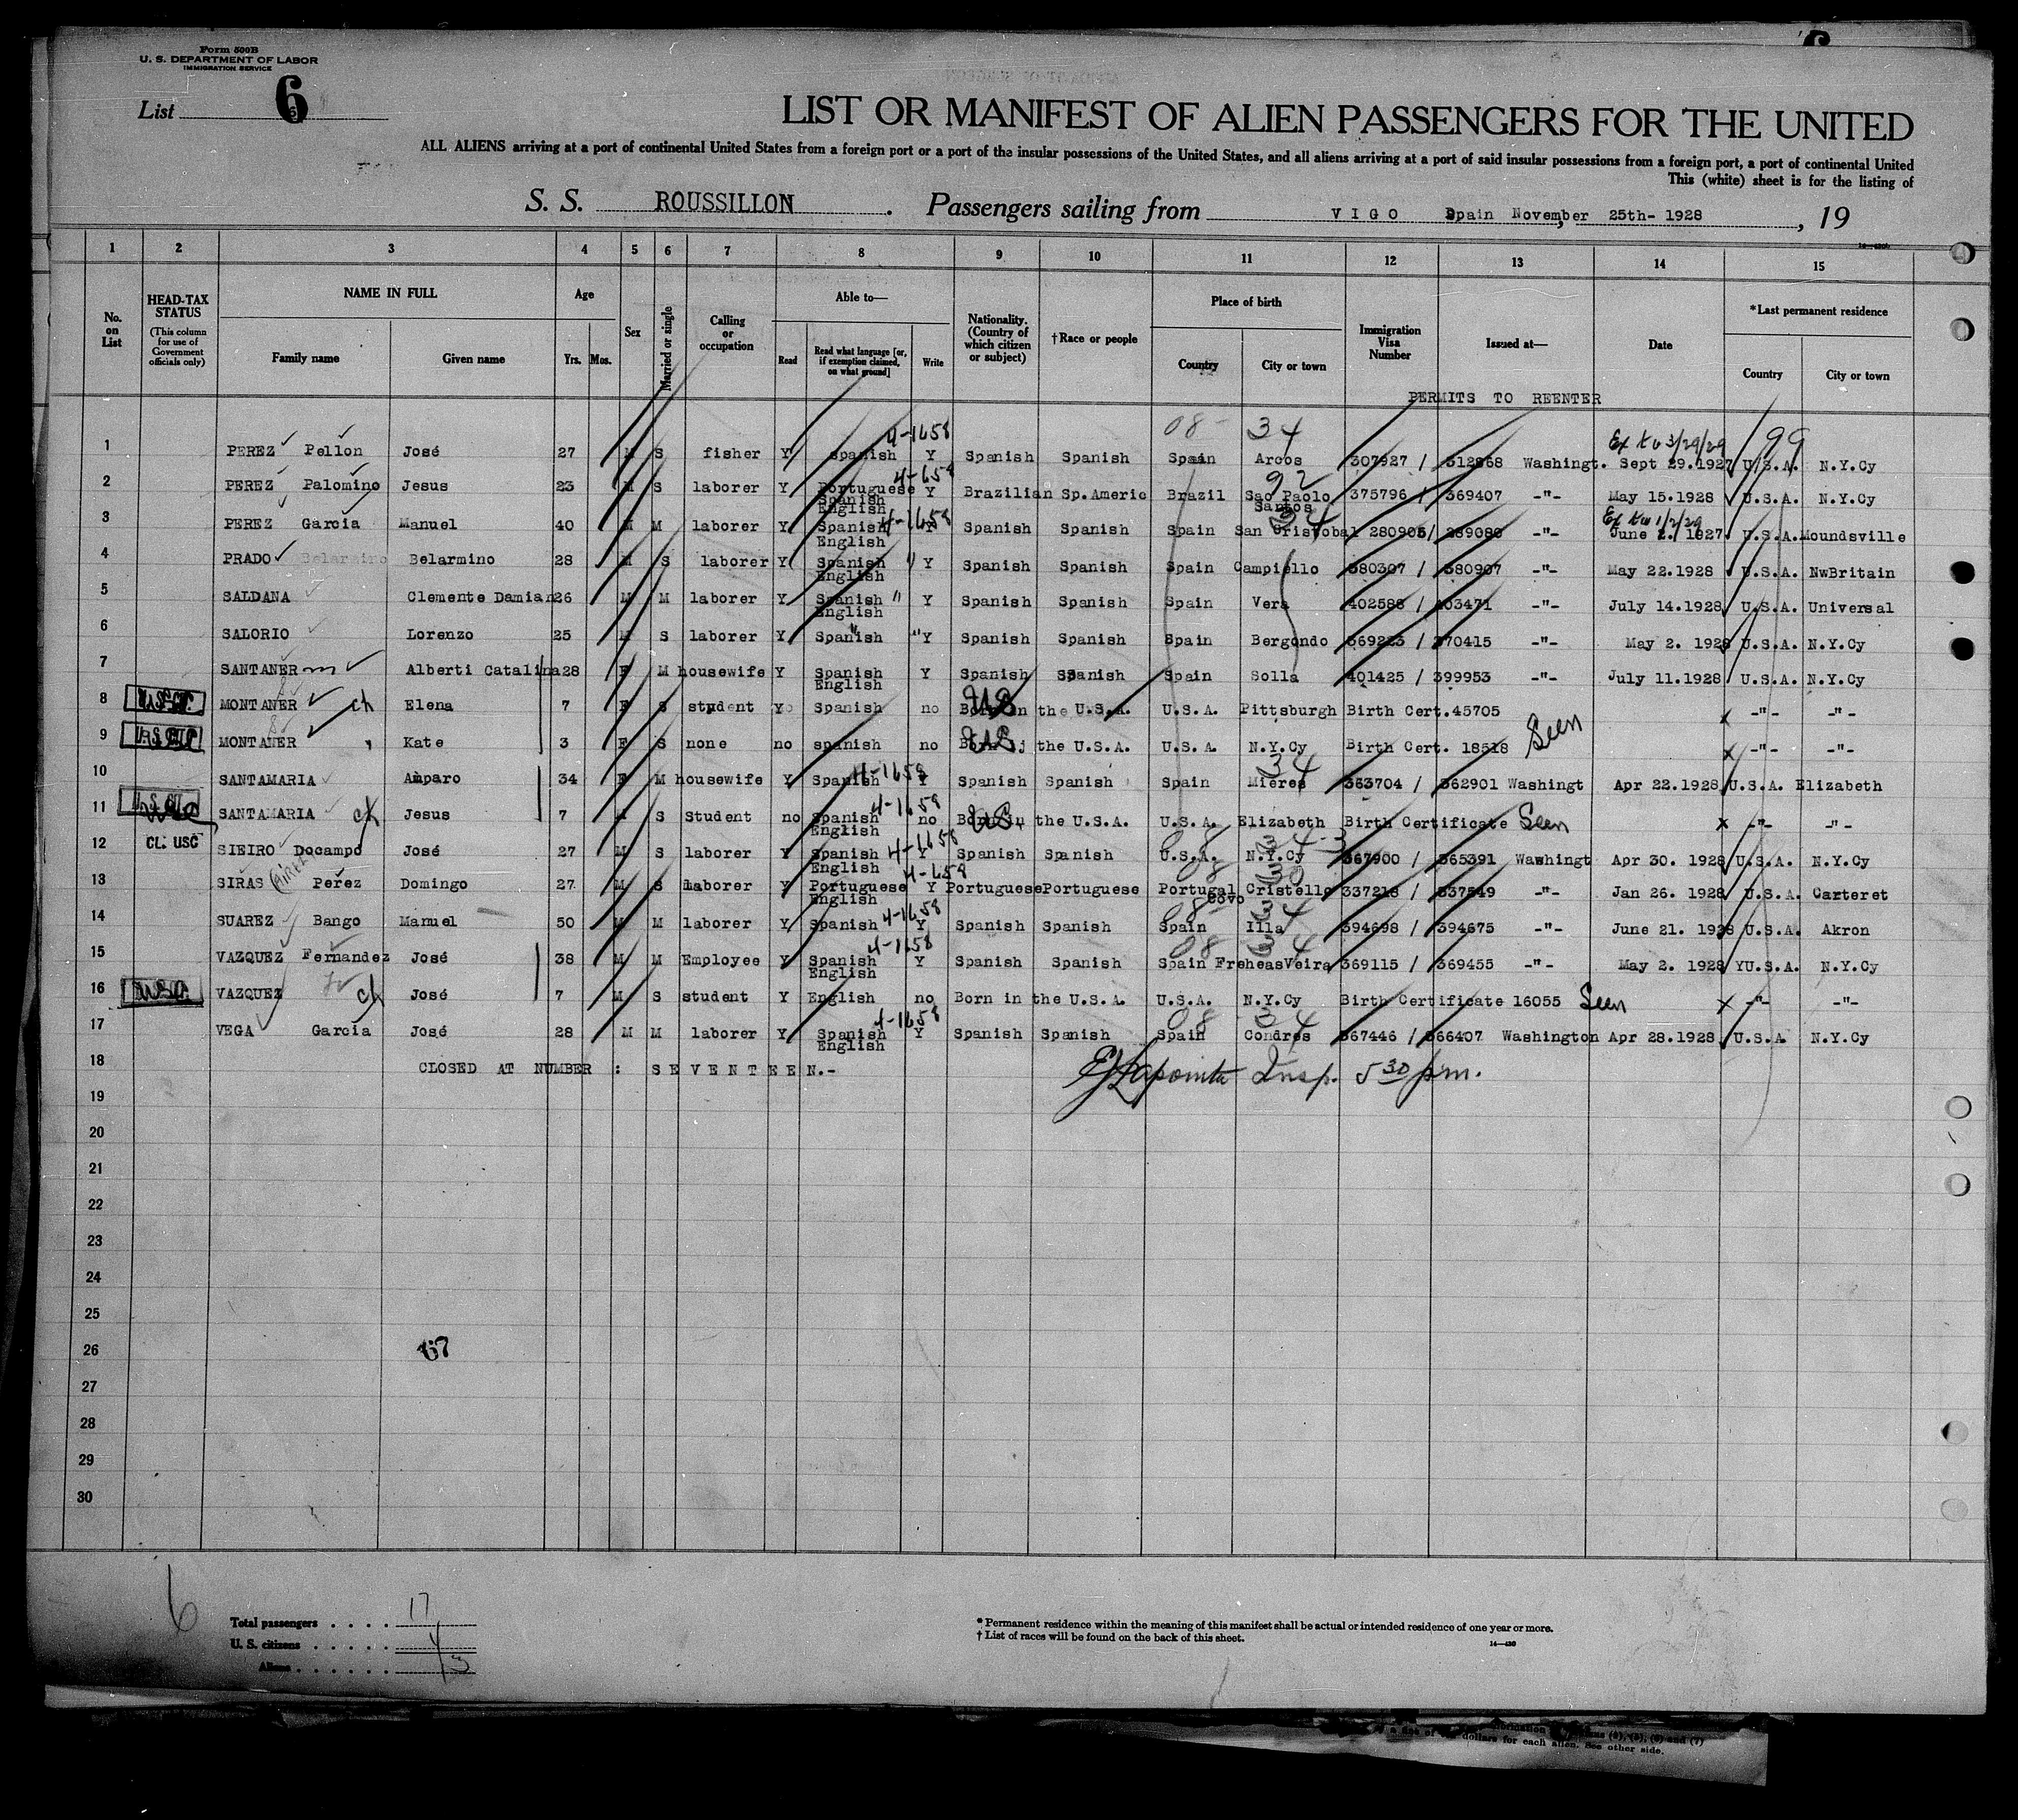 Form 500B
U. S. DEPARTMENT OF LABOR
IMMIGRATION SERVICE
List 6
LIST OR MANIFEST OF ALIEN PASSENGERS FOR THE UNITED
ALL ALIENS arriving at a port of continental United States from a foreign port or a port of the insular possessions of the United States, and all aliens arriving at a port of said insular possessions from a foreign port, a port of continental United
This (white) sheet is for the listing of
S. S. ROUSSILLON. Passengers sailing from VIGO Spain November, 25th- 1928, 19
1 2 3 4 5 6 7 8 9 10 11 12 13 14 15
No. on List
HEAD-TAX STATUS (This column for use of Government officials only)
NAME IN FULL Family name Given name
Age Yrs. Mos.
Sex
Married or single
Calling or occupation
Able to— Read Read what language [or, if exemption claimed, on what ground] Write
Nationality. (Country of which citizen or subject)
†Race or people
Place of birth Country City or town
Immigration Visa Number
Issued at—
Date
*Last permanent residence Country City or town
PERMITS TO REENTER
08- 34 Ex to 3/29/29 99
1 PEREZ Pellon José 27 M S fisher Y Spanish 4-1658 Y Spanish Spanish Spain Arcos 307927 / 312868 Washingt. Sept 29.1927 U.S.A. N.Y.Cy
2 PEREZ Palomino Jesus 23 M S laborer Y Portuguese Spanish English Y Brazilian Sp.Americ Brazil Sao Paolo Santos 92 375796 / 369407 -"- May 15.1928 U.S.A. N.Y.Cy
3 PEREZ Garcia Manuel 40 M M laborer Y Spanish English 4-1658 Y Spanish Spanish Spain San Cristobal 280905/ 289080 -"- Ex to 1/2/29 June 2. 1927 U.S.A. Moundsville
4 PRADO Belarmino Belarmino 28 M S laborer Y Spanish English " Y Spanish Spanish Spain Campiello 380307 / 380907 -"- May 22.1928 U.S.A. NwBritain
5 SALDANA Clemente Damian 26 M M laborer Y Spanish English " Y Spanish Spanish Spain Vera 402586 / 403471 -"- July 14.1928 U.S.A. Universal
6 SALORIO Lorenzo 25 M S laborer Y Spanish " Y Spanish Spanish Spain Bergondo 369223 / 370415 -"- May 2. 1928 U.S.A. N.Y.Cy
7 SANTANER m Alberti Catalina 28 F M housewife Y Spanish English Y Spanish Spanish Spain Solla 401425 / 399953 -"- July 11.1928 U.S.A. N.Y.Cy
8 MONTANER ch Elena 7 F S student Spanish no US Born in the U.S.A. U.S.A. Pittsburgh Birth Cert.45705 x -"- -"-
9 MONTANER " Kate 3 F S none no spanish no US Born in the U.S.A. U.S.A. N.Y.Cy Birth Cert. 18518 Seen x -"- -"-
10 SANTAMARIA Amparo 34 F M housewife Y Spanish 4-1658 Y Spanish Spanish Spain Mieres 34 363704 / 362901 Washingt Apr 22.1928 U.S.A. Elizabeth
11 U.S.CIT. SANTAMARIA ch Jesus 7 M S Student no Spanish English 4-1658 no US Born in the U.S.A. U.S.A. Elizabeth Birth Certificate Seen x -"- -"-
12 CL: USC SIEIRO Docampo José 27 M S laborer Y Spanish English 4-1658 Y Spanish Spanish U.S.A. N.Y.Cy 367900 / 365391 Washingt Apr 30. 1928 U.S.A. N.Y.Cy
13 SIRAS Perez Domingo 27 M S laborer Y Portuguese English Y Portuguese Portuguese Portugal Cristello Covo 337218 / 337549 -"- Jan 26. 1928 U.S.A. Carteret
14 SUAREZ Bango Manuel 50 M M laborer Y Spanish 4-1658 Y Spanish Spanish Spain Illa 394698 / 394675 -"- June 21. 1928 U.S.A. Akron
15 VAZQUEZ Fernandez José 38 M M Employee Y Spanish English 4-1658 Y Spanish Spanish Spain FreheasVeira 369115 / 369455 -"- May 2. 1928 YU.S.A. N.Y.Cy
16 VAZQUEZ ch José 7 M S student Y English no Born in the U.S.A. U.S.A. N.Y.Cy Birth Certificate 16055 Seen x -"- -"-
17 VEGA Garcia José 28 M M laborer Y Spanish English 4-1658 Y Spanish Spanish Spain Condres 08 34 367446 / 366407 Washington Apr 28.1928 U.S.A N.Y.Cy
18 CLOSED AT NUMBER : SEVENTEEN.- Insp. 5 30 pm.
19
20
21
22
23
24
25
26 67
27
28
29
30
6
Total passengers . . . . 17
U. S. citizens . . . . . 4
Aliens . . . . . . 13
* Permanent residence within the meaning of this manifest shall be actual or intended residence of one year or more.
† List of races will be found on the back of this sheet.
14—430
dollars for each alien. See other side.